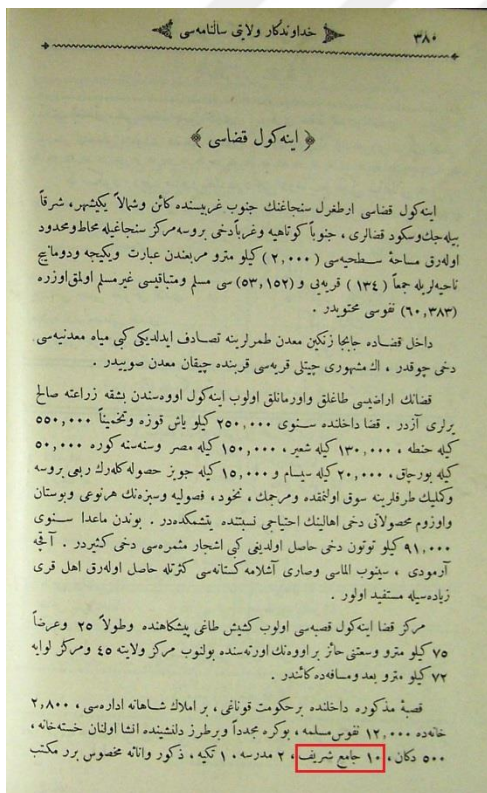 ٣٨٠
خداوندكار ولايتى سالنامه‌سى
﴿ اينه‌كول قضاسى ﴾
اينه‌كول قضاسى ارطغرل سنجاغنك جنوب غربيسنده كائن وشمالاً يكيشهر، شرقاً
بيله‌جك وسكود قضالرى، جنوباً كوتاهيه وغرباً دخى بروسه مركز سنجاغيله محاط ومحدود
اوله‌رق مساحهٔ سطحيه‌سى (٢,٠٠٠) كيلو مترو مربعندن عبارت ويكيجه ودومانيج
ناحيه‌لريله جمعاً (١٣٤) قريه‌يى و (٥٣,١٥٢) سى مسلم ومتباقيسى غيرمسلم اولمق اوزره
(٦٠,٣٨٣) نفوسى محتويدر .
داخل قضاده جابجا زنكين معدن طمرلرينه تصادف ايدلديكى كبى مياه معدنيه‌سى
دخى چوقدر . اك مشهورى چيتلى قريه‌سى قربنده چيقان معدن صوييدر .
قضانك اراضيسى طاغلق واورمانلق اولوب اينه‌كول اووه‌سندن بشقه زراعته صالح
يرلرى آزدر . قضا داخلنده سنوى ٢٥٠,٠٠٠ كيلو ياش قوزه وتخميناً ٥٥٠,٠٠٠
كيله حنطه ، ١٣٠,٠٠٠ كيله شعير ، ١٥٠,٠٠٠ كيله مصر وسنه‌سنه كوره ٥٠,٠٠٠
كيله بورچاق ، ٢٠,٠٠٠ كيله سيسام و ١٥,٠٠٠ كيله جويز حصوله كله‌رك ربعى بروسه
وكمليك طرفلرينه سوق اولنمقده ومرجمك ، نخود ، فصوليه وسبزه‌نك هرنوعى وبوستان
واوزوم محصولاتى دخى اهالينك احتياجى نسبتنده يتشمكده‌در . بوندن ماعدا سنوى
٩١,٠٠٠ كيلو توتون دخى حاصل اولديغى كبى اشجار مثمره‌سى دخى كثيردر . آقچه
آرمودى ، سينوب الماسى وصارى آشلامه كستانه‌سى كثرتله حاصل اوله‌رق اهل قرى
زياده‌سيله مستفيد اولور .
مركز قضا اينه‌كول قصبه‌سى اولوب كشيش طاغى پيشكاهنده وطولاً ٢٥ وعرضاً
٧٥ كيلو مترو وسعتنى حائز بر اووه‌نك اورته‌سنده بولنوب مركز ولايته ٤٥ ومركز لوايه
٧٢ كيلو مترو بعد ومسافه‌ده كائندر .
قصبهٔ مذكوره داخلنده بر حكومت قوناغى ، بر املاك شاهانه اداره‌سى ، ٢,٨٠٠
خانه‌ده ١٢,٠٠٠ نفوس مسلمه ، بوكره مجدداً وبر طرز دلنشينده انشا اولنان خسته‌خانه ،
٥٠٠ دكان ، ١٠ جامع شريف ، ٢ مدرسه ، ١ تكيه ، ذكور واناثه مخصوص برر مكتب